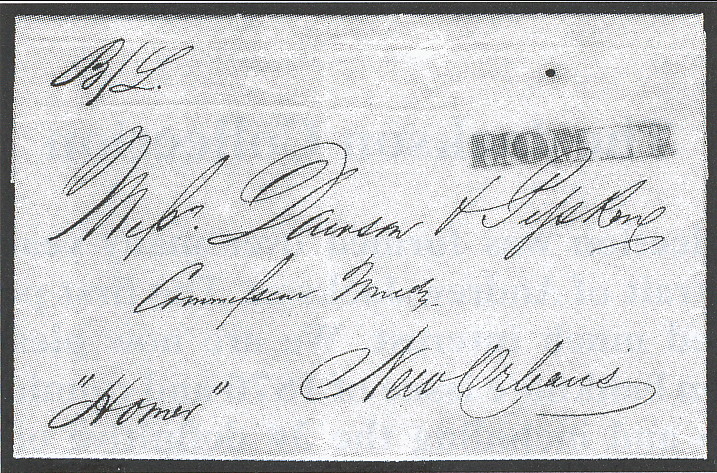 B/L.
HOMER
Messrs. Dawson &
Commission Merch
New Orleans
"Homer"